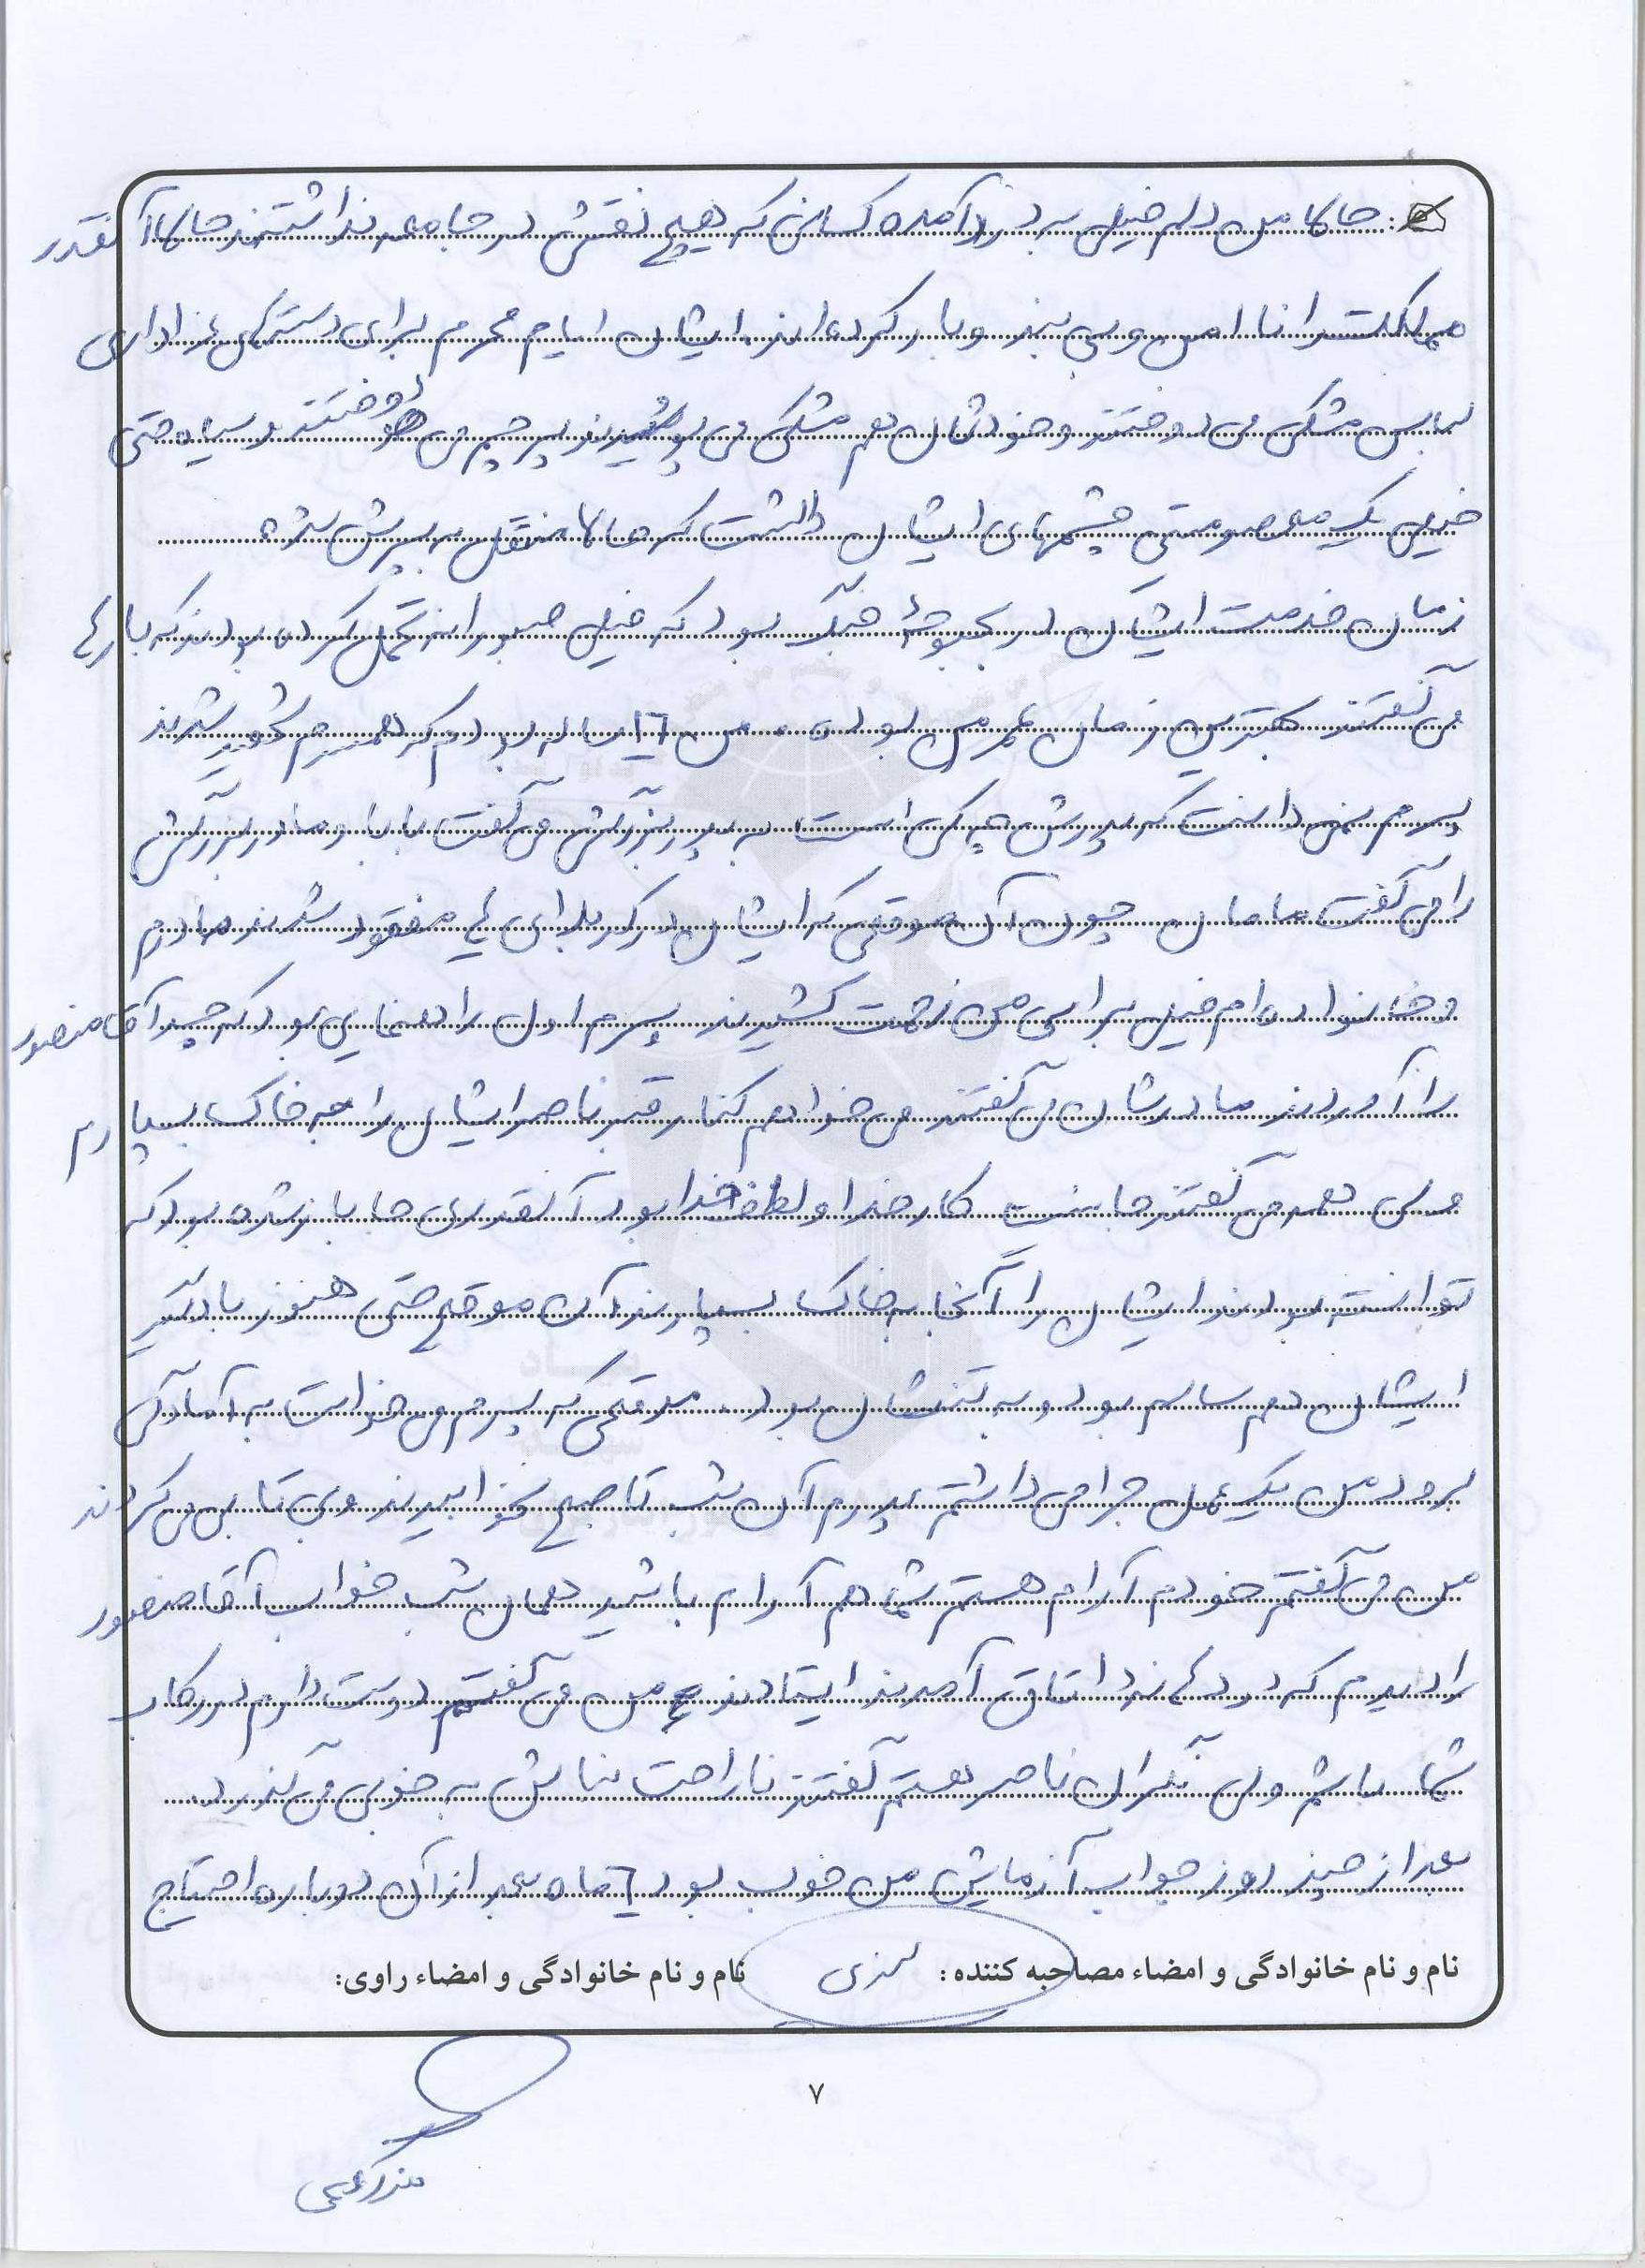 حالا من دلم خیلی به درد آمده کسانی که هیچ نقشی در جامعه نداشتند حالا آنقدر
مملکت را نا امن و بی بند و بار کرده اند. ایشان ایام محرم برای دسته‌های عزاداری
لباس مشکی می دوختند و خودشان هم مشکی می پوشیدند پرچم می دوختند و سیاه حتی
خیلی یک معصومیتی چشمهای ایشان داشت که حالا منتقل به پسرش شده
زمان خدمت ایشان در بحبوحهٔ جنگ بود که خیلی صبورانه تحمل کرده بودند که بارها
می گفتند بهترین زمان عمر من بوده. من ۱۶ ساله بودم که همسرم شهید شدند
پسرم نمی دانست که پدرش چه کسی است به پدربزرگش می گفت بابا و مادربزرگش
را می گفت مامان چون آن موقعی که ایشان در کربلای ۴ مفقود شدند مادرم
و خانواده ام خیلی برای من زحمت کشیدند پسرم اول راهنمایی بود که جسد آقا منصور
را آوردند مادرشان می گفتند می خواهم کنار قبر ناصر ایشان را به خاک بسپارم
ولی همه می گفتند جا نیست کار خدا و لطف خدا بود آنقدری جا باز شده بود که
توانسته بودند ایشان را آنجا به خاک بسپارند آن موقع حتی هنوز بادگیر
ایشان هم سالم بود و به تنشان بود. موقعی که پسرم می خواست به آمادگی
برود من یک عمل جراحی داشتم پدرم آن شب تا صبح نخوابیدند و بی تابی می کردند
من می گفتم خودم آرام هستم شما هم آرام باشید همان شب خواب آقا منصور
را دیدم که در درگاه اتاق آمدند ایستادند من می گفتم دوست دارم در رکاب
شما باشم ولی نگران ناصر هستم گفتند ناراحت نباش به خوبی می گذرد.
بعد از چند روز جواب آزمایش من خوب بود ۶ ماه بعد از آن دوباره احتیاج
نام و نام خانوادگی و امضاء مصاحبه کننده: نام و نام خانوادگی و امضاء راوی:
۷